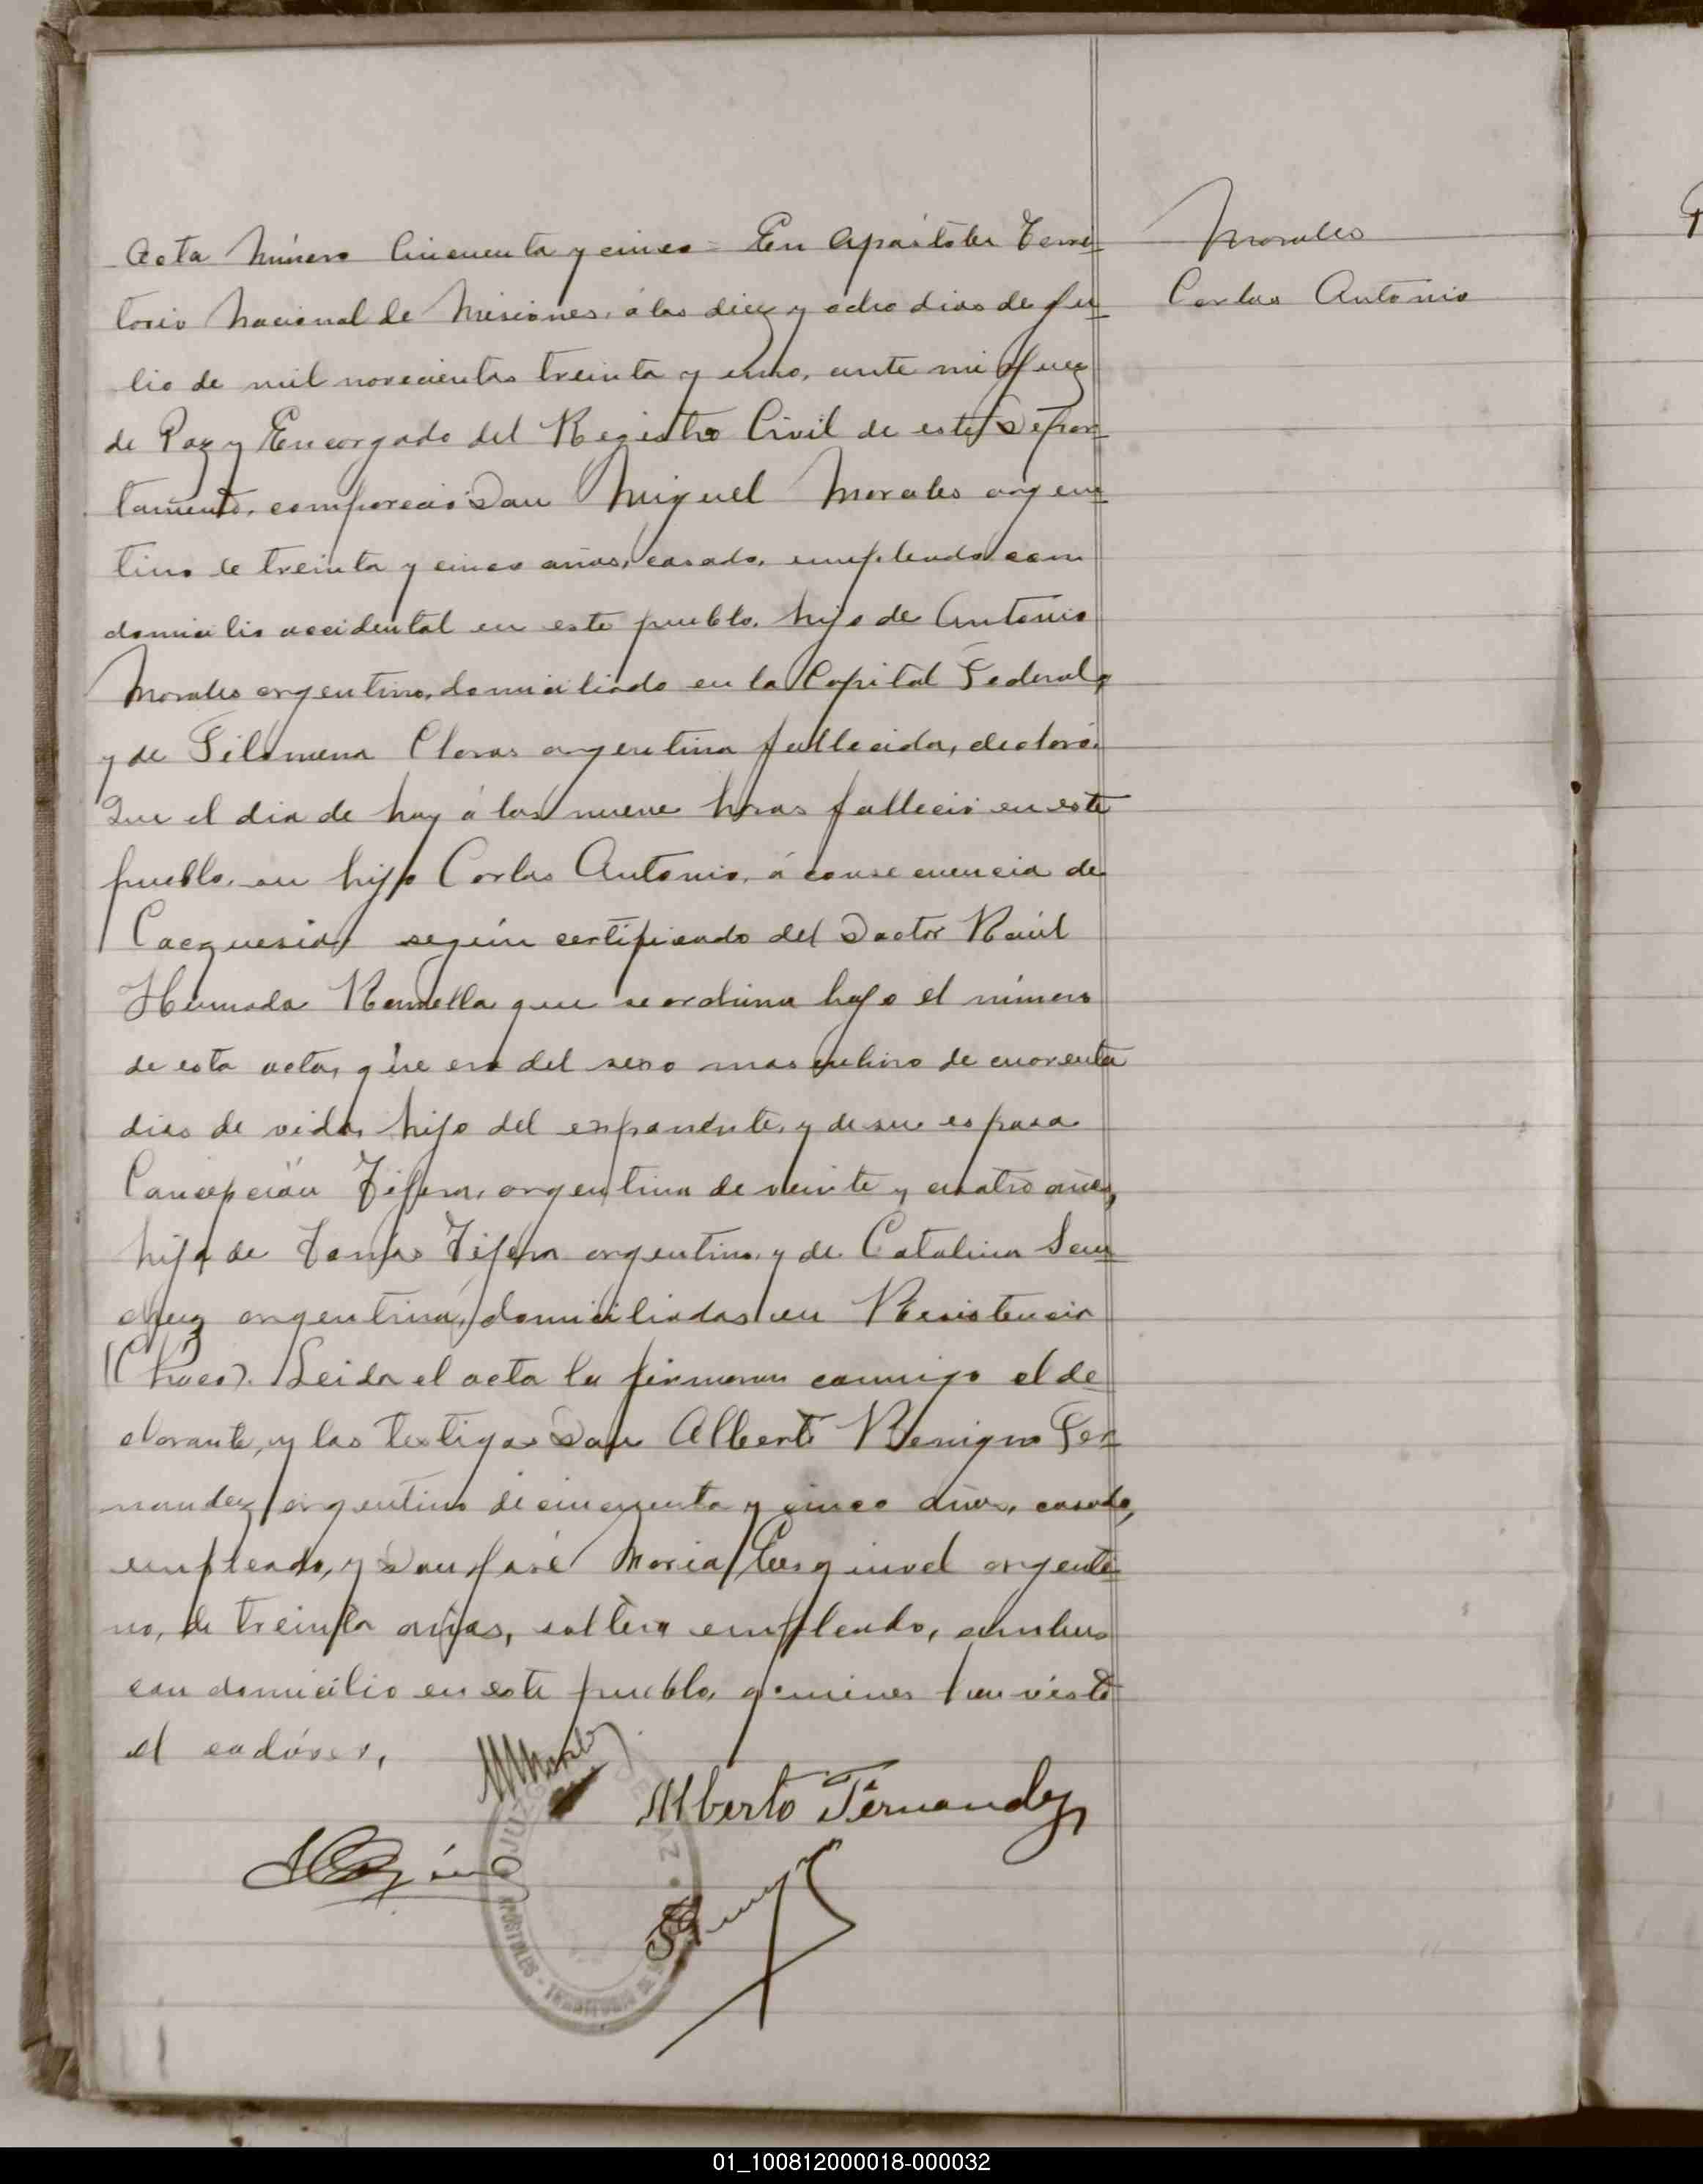 Acta Número Cincuenta y cinco = En Apóstoles Terri-
torio Nacional de Misiones, á los diez y ocho dias de Ju-
lio de mil novecientos treinta y uno, ante mi Juez
de Paz y Encargado del Registro Civil de este Depar-
tamento, compareció Don Miguel Morales argen-
tino de treinta y cinco años, casado, empleado con
domicilio accidental en este pueblo, hijo de Antonio
Morales argentino, domiciliado en la Capital Federal,
y de Filomena argentina fallecida, declaró:
Que el dia de hoy á las nueve horas falleció en este
pueblo, su hijo Carlos Antonio, á consecuencia de
según certificado del Doctor Raúl
que se archiva bajo el número
de esta acta, que era del sexo masculino de cuarenta
dias de vida, hijo del exponente, y de su esposa
Concepción Tijera, argentina de veinte y cuatro años,
hija de Tomás Tijera argentino, y de Catalina San-
chez argentina, domiciliados en Resistencia
(Chaco). Leida el acta la firmaron conmigo el de-
clarante, y los testigos Don Alberto Benigno Fer-
nandez argentino de cincuenta y cinco años, casado,
empleado, y Don José Maria Esquivel argenti-
no, de treinta años, soltero empleado, ambos
con domicilio en este pueblo, quienes han visto
el cadáver,
Alberto Fernandez
JUZGADO DE PAZ
APÓSTOLES - TERRITORIO DE
Morales
Carlos Antonio
01_100812000018-000032